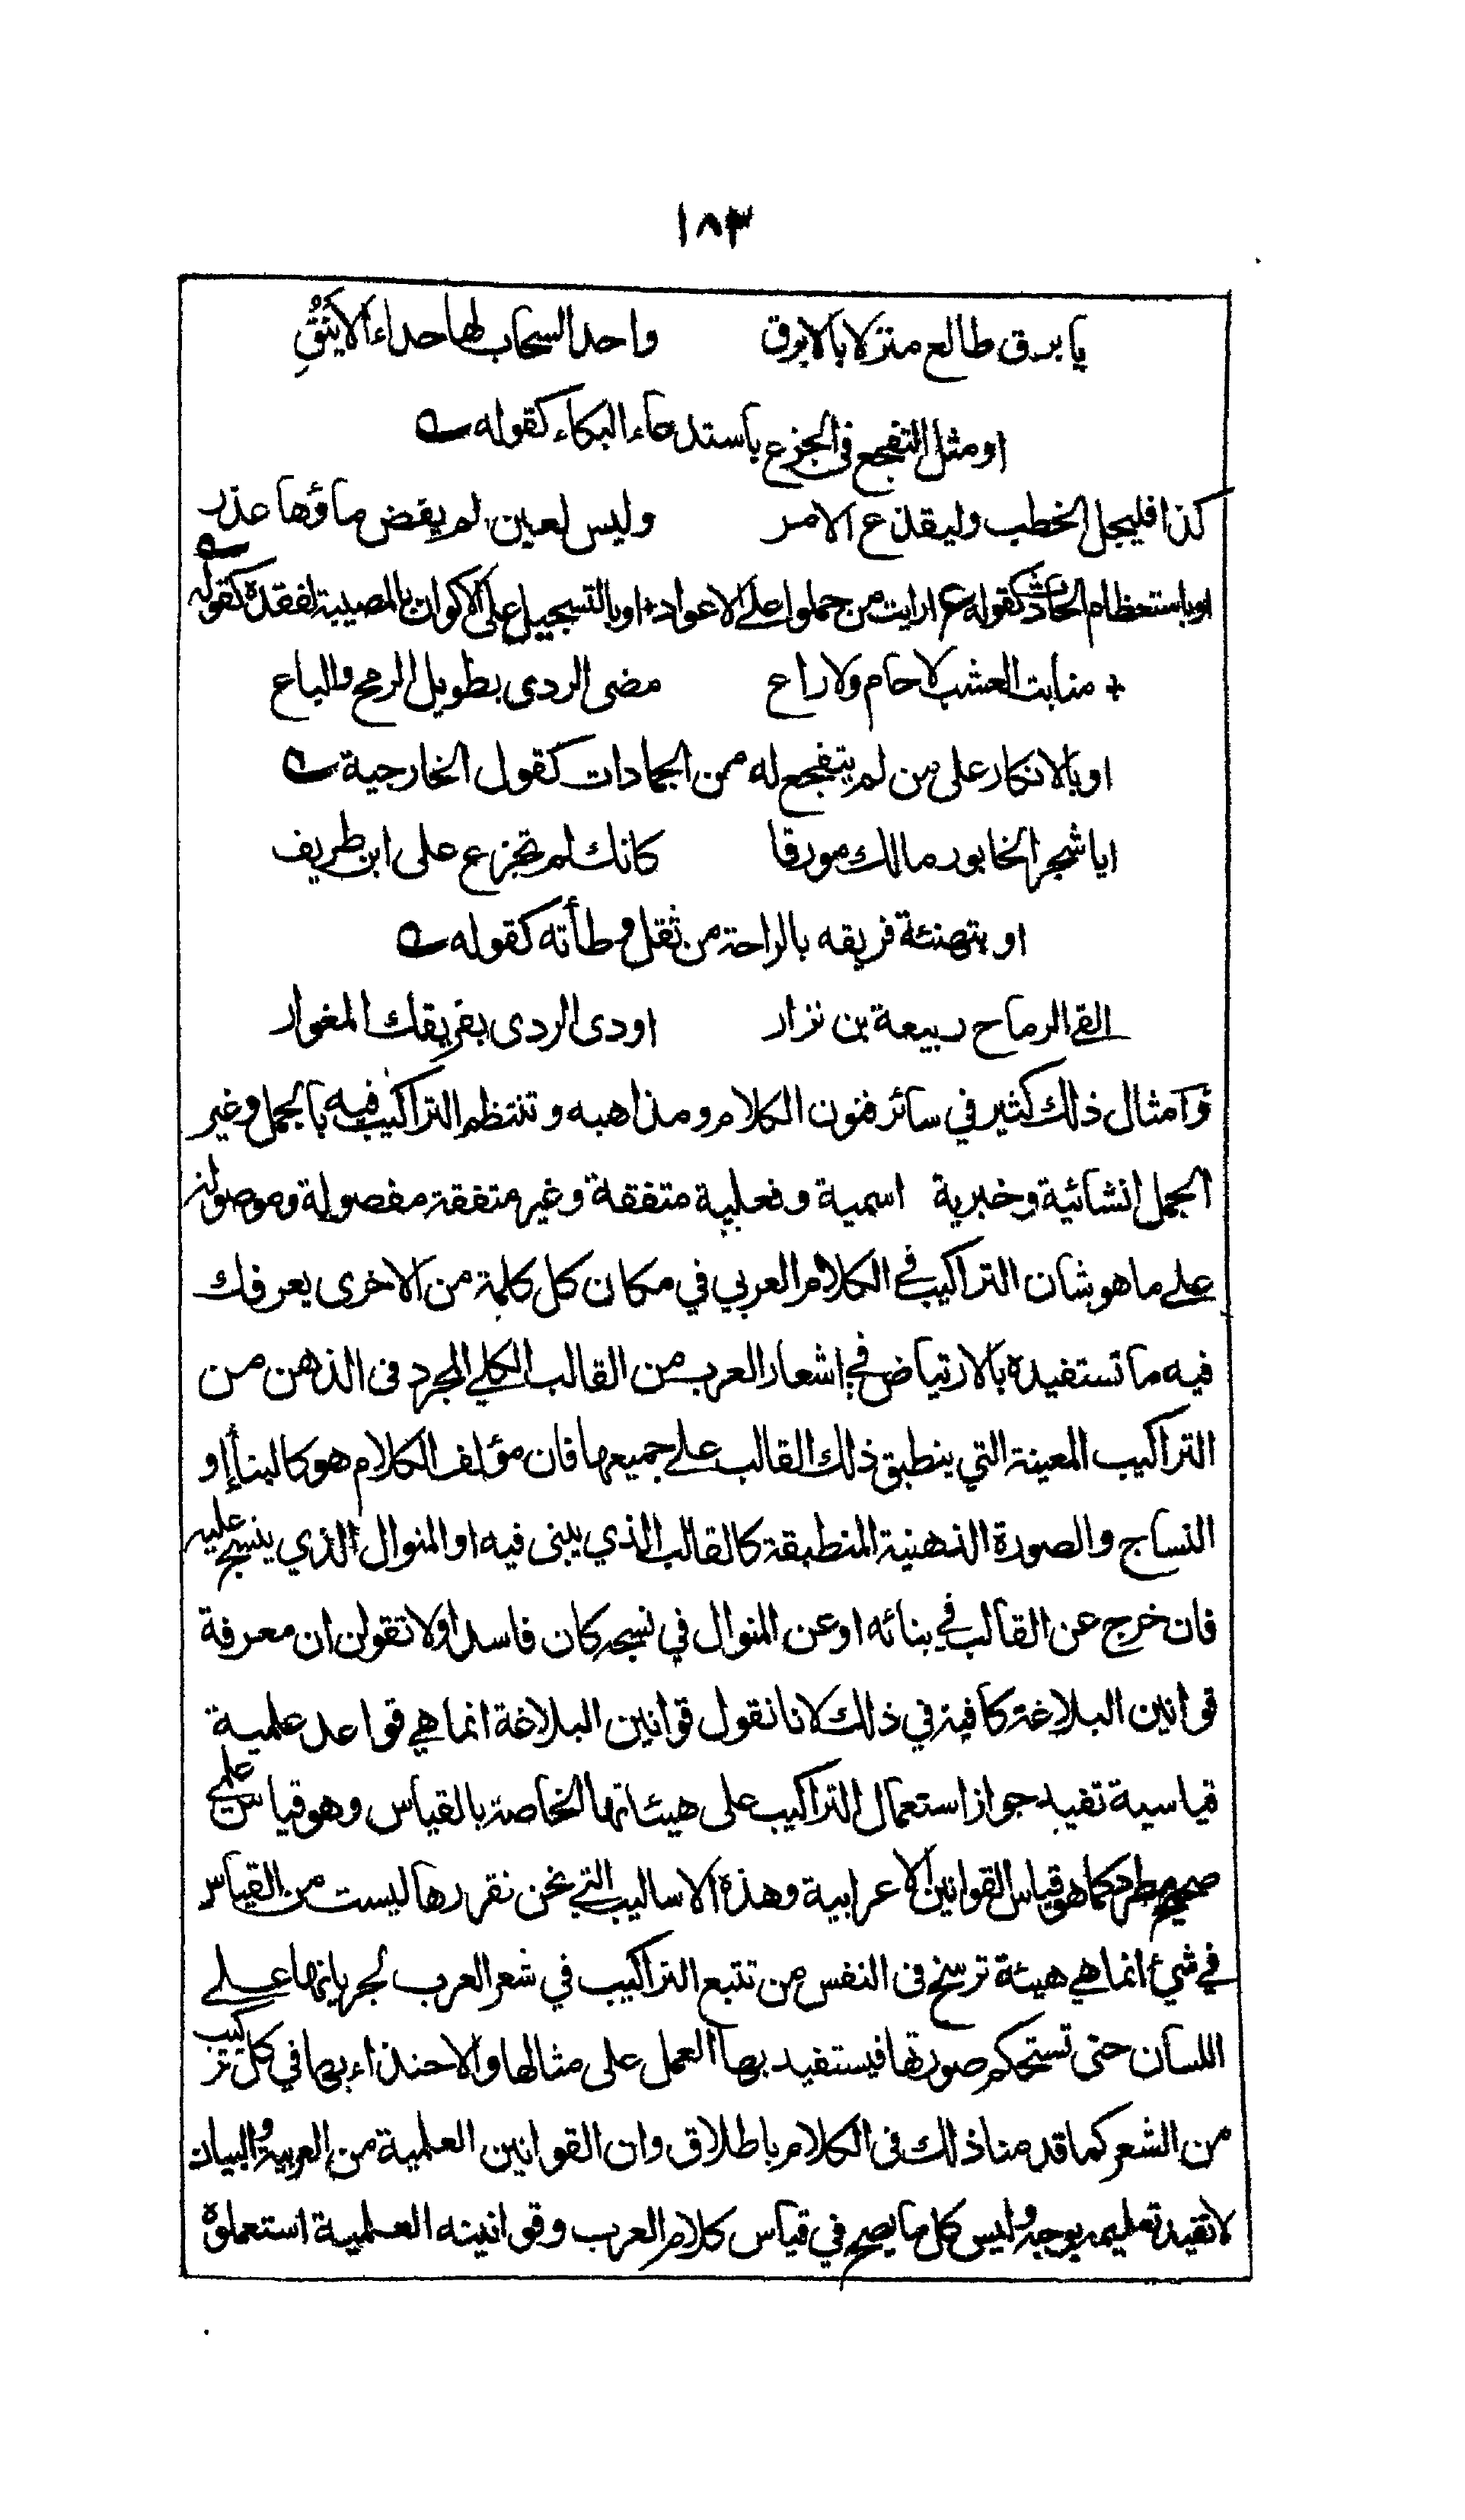 ١٨٣
يا برق طالع منزلا بالابرق واحد السحاب لها حداء الاينُقِ
او مثل التفجع فى الجزع باستدعاء البكاء كقوله
كذا فليجل الخطب وليقدح الامر وليس لعين لم يفض ماؤها عذر
او باستعظام الحادث كقوله ع ارايت من حملوا على الاعواد + او بالتسجيل على الاكوان بالمصيبة لفقده كقوله
+ منابت العشب لا حام ولا راع مضى الردى بطويل الرمح والباع
او بالانكار على من لم يتفجع له من الجمادات كقول الخارجية
ايا شجر الخابور مالك مورقا كانك لم تجزع على ابن طريف
او بتهنئة فريقه بالراحة من ثقل وطأته كقوله
القى الرماح ربيعة بن نزار اودى الردى بفريقك المغوار
وامثال ذلك كثير في سائر فنون الكلام ومذاهبه وتنتظم التراكيب فيه بالجمل وغير
الجمل انشائية وخبرية اسمية وفعلية متفقة وغير متفقة مفصولة وموصولة
على ما هو شان التراكيب في الكلام العربي في مكان كل كلمة من الاخرى يعرفك
فيه ما تستفيده بالارتياض في اشعار العرب من القالب الكلي المجرد فى الذهن من
التراكيب المعينة التي ينطبق ذلك القالب على جميعها فان مؤلف الكلام هو كالبنأ او
النساج والصورة الذهنية المنطبقة كالقالب الذي يبنى فيه او المنوال الذي ينسج عليه
فان خرج عن القالب في بنائه او عن المنوال في نسجه كان فاسدا ولا تقولن ان معرفة
قوانين البلاغة كافية في ذلك لانا نقول قوانين البلاغة انما هي قواعد علمية
قياسية تفيد جواز استعمال التراكيب على هيئاتها الخاصة بالقياس وهو قياس علمي
صحيح مطرد كما هو قياس القوانين الاعرابية وهذه الاساليب التي نحن نقررها ليست من القياس
في شيء انما هي هيئة ترسخ فى النفس من تتبع التراكيب في شعر العرب لجريانها على
اللسان حتى تستحكم صورتها فيستفيد بها العمل على مثالها والاحتذاء بها في كل تركيب
من الشعر كما قدمنا ذلك فى الكلام باطلاق وان القوانين العلمية من العربية والبيان
لا تفيد تعليمه بوجه وليس كل ما يصح في قياس كلام العرب وقوانينه العلمية استعملوه